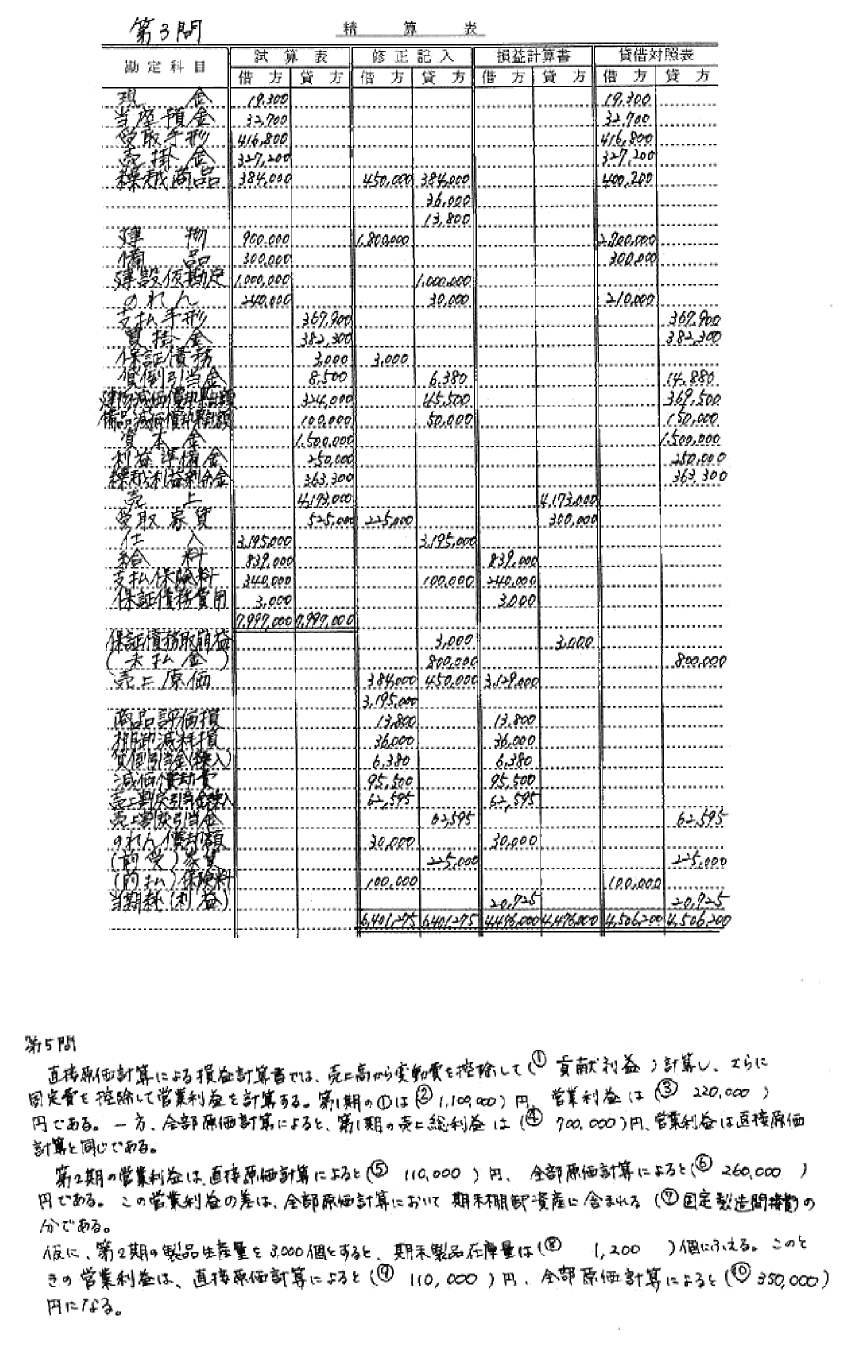 第3問
精算表
勘定科目 試算表 修正記入 損益計算書 貸借対照表
借方 貸方 借方 貸方 借方 貸方 借方 貸方
現金 19,300 19,300
当座預金 32,700 32,700
受取手形 416,800 416,800
売掛金 327,200 327,200
繰越商品 384,000 450,000 384,000 400,200
36,000
13,800
建物 900,000 1,800,000 2,700,000
備品 300,000 300,000
建設仮勘定 1,000,000 1,000,000
のれん 240,000 30,000 210,000
支払手形 367,900 367,900
買掛金 382,300 382,300
保証債務 3,000 3,000
貸倒引当金 8,500 6,380 14,880
建物減価償却累計額 324,000 45,500 369,500
備品減価償却累計額 100,000 50,000 150,000
資本金 1,500,000 1,500,000
利益準備金 250,000 250,000
繰越利益剰余金 363,300 363,300
売上 4,173,000 4,173,000
受取家賃 525,000 225,000 300,000
仕入 3,195,000 3,195,000
給料 839,000 839,000
支払保険料 340,000 100,000 240,000
保証債務費用 3,000 3,000
7,997,000 7,997,000
保証債務取崩益 3,000 3,000
(未払金) 800,000 800,000
売上原価 384,000 450,000 3,129,000
3,195,000
商品評価損 13,800 13,800
棚卸減耗損 36,000 36,000
貸倒引当金(繰入) 6,380 6,380
減価償却費 95,500 95,500
売上割戻引当金繰入 62,595 62,595
売上割戻引当金 62,595 62,595
のれん償却額 30,000 30,000
(前受)家賃 225,000 225,000
(前払)保険料 100,000 100,000
当期純(利益) 20,725 20,725
6,401,275 6,401,275 4,476,000 4,476,000 4,506,200 4,506,200
第5問
直接原価計算による損益計算書では、売上高から変動費を控除して(① 貢献利益 )計算し、さらに
固定費を控除して営業利益を計算する。第1期の①は(② 1,100,000)円、営業利益は(③ 220,000 )
円である。一方、全部原価計算によると、第1期の売上総利益は(④ 700,000)円、営業利益は直接原価
計算と同じである。
第2期の営業利益は、直接原価計算によると(⑤ 110,000 )円、全部原価計算によると(⑥ 260,000 )
円である。この営業利益の差は、全部原価計算において期末棚卸資産に含まれる(⑦固定製造間接費)の
分である。
仮に、第2期の製品生産量を3,000個とすると、期末製品在庫量は(⑧ 1,200 )個にふえる。このと
きの営業利益は、直接原価計算によると(⑨ 110,000 )円、全部原価計算によると(⑩ 350,000)
円になる。